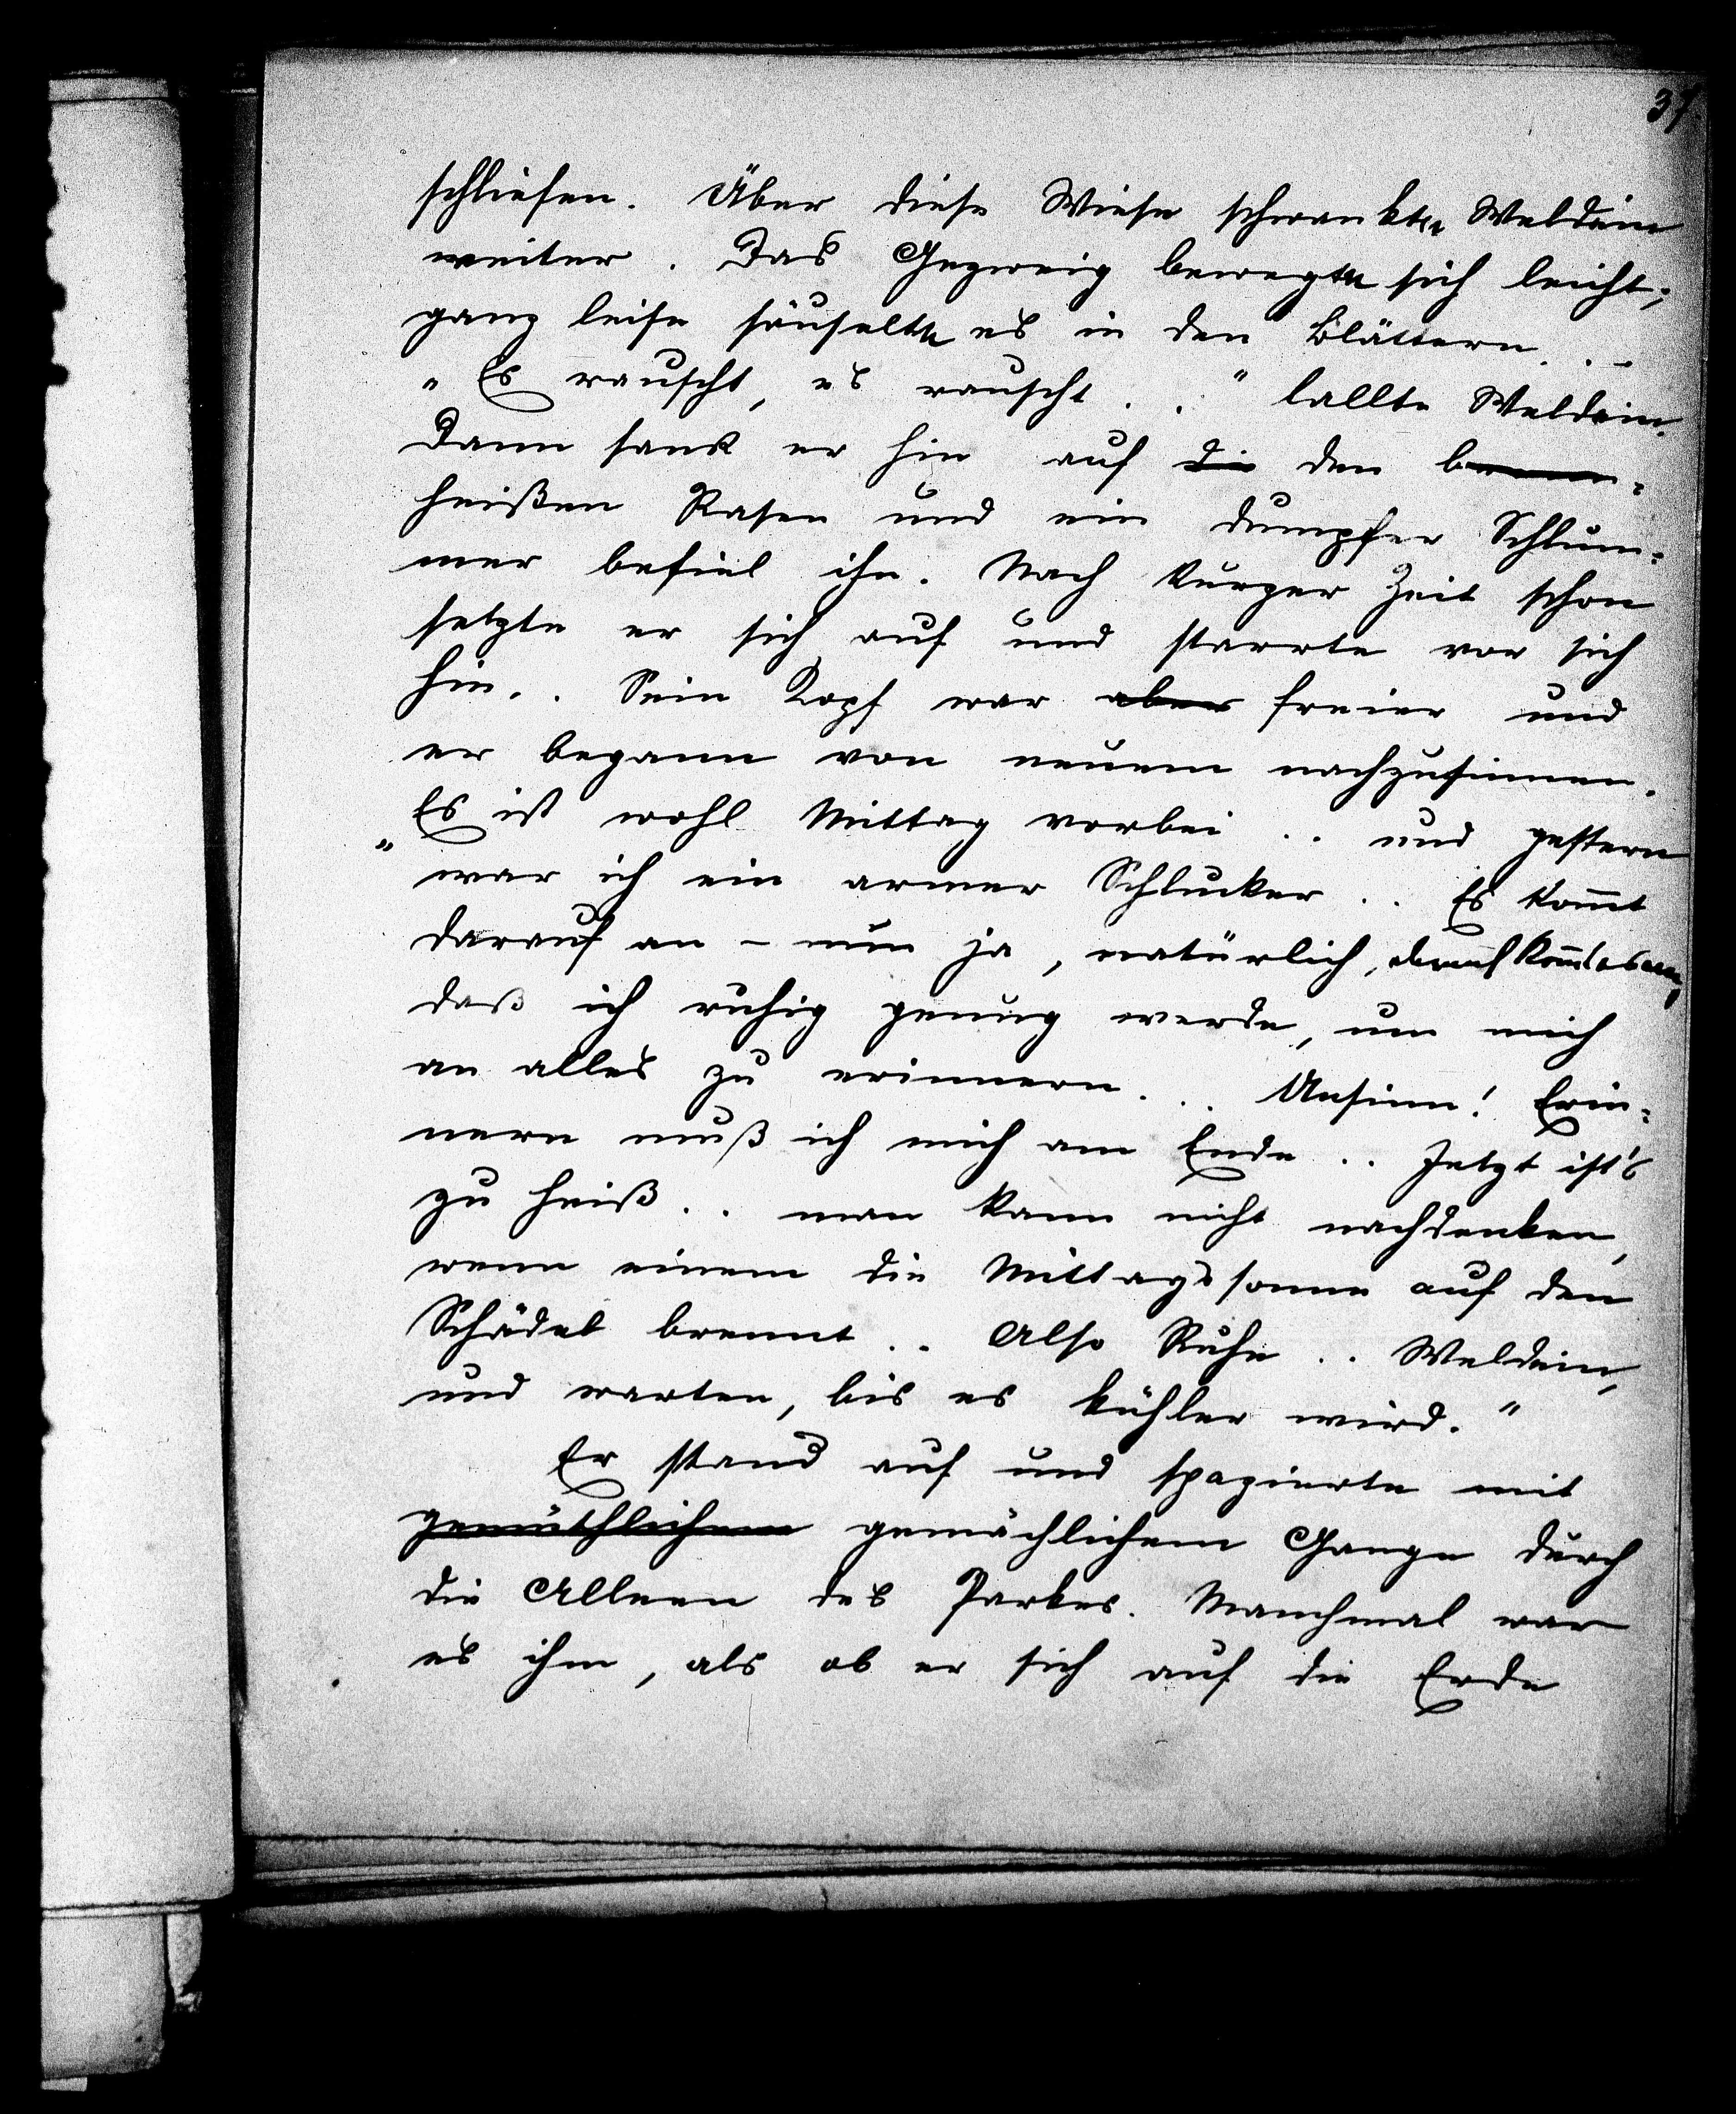 37
schliefen. Über diese Wiese schwankte Weldein
weiter. Das Gezweig bewegte sich leicht;
ganz leise säuselte es in den Blättern...
„Es rauscht, es rauscht.." lallte Weldein.
Dann sank er hin auf die den
heißen Rasen und ein dumpfer Schlum=
mer befiel ihn. Nach kurzer Zeit schon
setzte er sich auf und starrte vor sich
hin.. Sein Kopf war aber freier und
er begann von neuem nachzusinnen.
„Es ist wohl Mittag vorbei .. und gestern
war ich ein armer Schlucker .. Es kom̅t
darauf an – nun ja, natürlich, darauf kom̅t es an,
daß ich ruhig genug werde, um mich
an alles zu erinnern... Unsinn! Erin=
nern muß ich mich am Ende .. Jetzt ist's
zu heiß .. man kann nicht nachdenken,
wenn einem die Mittagssonne auf den
Schädel brennt .. Also Ruhe .. Weldein,
und warten, bis es kühler wird."
Er stand auf und spazierte mit
gemüthlichem gemächlichem Gange durch
die Alleen des Parkes. Manchmal war
es ihm, als ob er sich auf die Erde